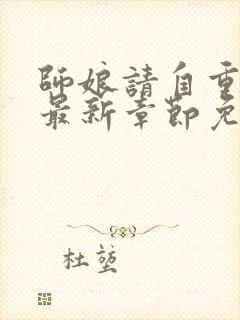 師娘請自重
最新章節免
杜堃